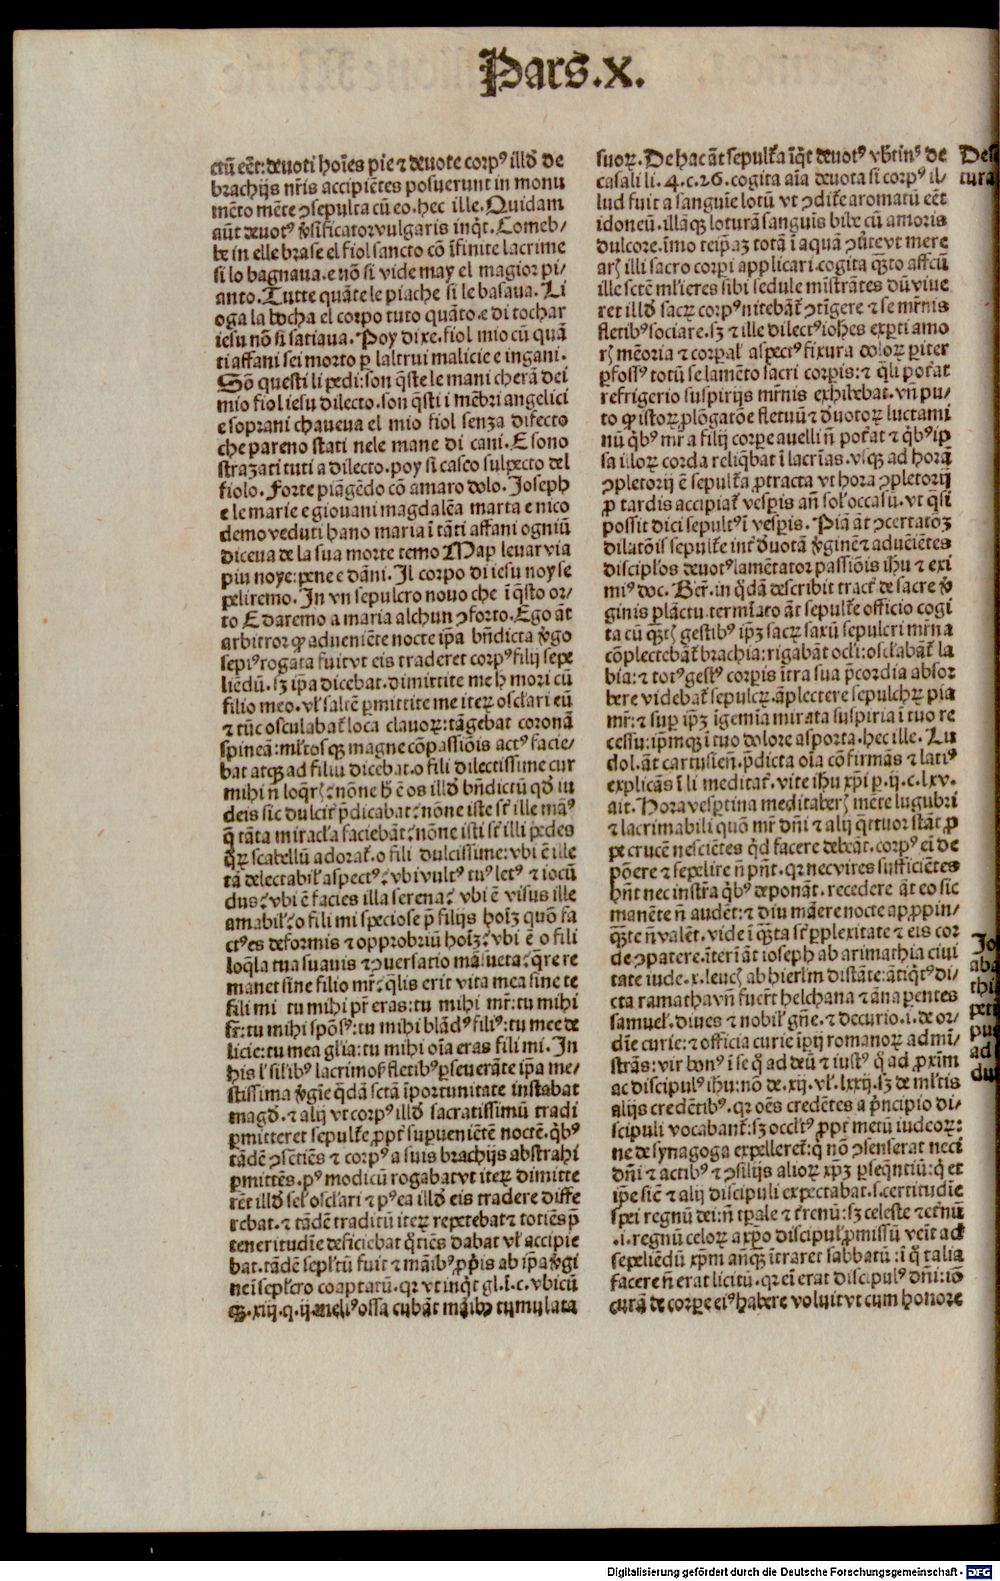 Pars.x.
ctū eēt: deuoti hoīes pie ⁊ deuote corpꝰ illđ de
brachijs nr̄is accipiētes posuerunt in monu
mēto mēte ꝯsepulta cū eo. hec ille. Quidam
aūt deuotꝰ v̄sificator vulgaris inq̄t. Comeb⸗
be in elle brase el fiol sancto cō īfinite lacrime
si lo bagnaua. e nō si vide may el magior pi⸗
anto. Tutte quāte le piache si le basaua. Li
oga la bocha el corpo tuto quāto. e di tochar
iesu nō si satiaua. Poy dixe. fiol mio cū quā
ti affani sei morto ꝑ laltrui malicie e ingani.
Sō questi li pedi: son q̄ste le mani cherā dei
mio fiol iesu dilecto. son q̄sti i mēbri angelici
e soprani chaueua el mio fiol senza difecto
che pareno stati nele mane di cani. E sono
strazati tuti a dilecto. poy si casco sul pecto del
fiolo. Forte piāgēdo cō amaro dolo. Joseph
e le marie e giouani magdalēa marta e nico
demo veduti hano maria ī tāti affani ogniū
diceua de la sua morte temo Map leuar via
piu noye: pene e dāni. Il corpo di iesu noy se
peliremo. In vn sepulcro nouo che ī q̄sto or⸗
to E daremo a maria alchun ꝯforto. Ego āt
arbitror ꝙ adueniēte nocte ip̄a bn̄dicta v̄go
sepiꝰ rogata fuit vt eis traderet corpꝰ filij sepe
liēdū. sz ip̄a dicebat. dimittite me hᷓ mori cū
filio meo. vl̄ saltē ꝑmittite me iteꝝ osclari eū
⁊ tūc osculabat̄ loca clauoꝝ: tāgebat coronā
spineā: ml̄tosqꝫ magne cōpassiōis actꝰ facie⸗
bat atqꝫ ad filiū dicebat. o fili dilectissime cur
mihi n̄ loq̄rꝭ: nōne h̄ ē os illđ bn̄dictū qđ iu
deis sic dulcit̄ p̄dicabat: nōne iste st̄ ille māꝰ
q̄ tāta miracl̄a faciebāt: nōne isti st̄ illi pedes
q̄ꝝ scabellū adorat̄. o fili dulcissime: vbi ē ille
tā delectabil̄ aspectꝰ: vbi vultꝰ tuꝰ letꝰ ⁊ iocū
dus: vbi ē facies illa serena: vbi ē visus ille
amabil̄: o fili mi speciose p̄ filijs hoīz quō fa
ctꝰ es deformis ⁊ opprobriū hoīz: vbi ē o fili
loq̄la tua suauis ⁊ ꝯuersatio māsueta: q̄re re
manet sine filio mr̄: q̄lis erit vita mea sine te
fili mi tu mihi pr̄ eras: tu mihi mr̄: tu mihi
fr̄: tu mihi spōsꝰ: tu mihi blādꝰ filiꝰ: tu mee de
licie: tu mea gl̄ia: tu mihi oīa eras fili mi. In
his l̄ silibꝰ lacrimosꝭ fletibꝰ ꝑseuerāte ip̄a me⸗
stissima v̄gīe q̄dā sctā īportunitate instabat
magđ. ⁊ alij vt corpꝰ illđ sacratissimū tradi
ꝑmitteret sepult̄e ꝓpt̄ suꝑueniētē noctē. q̄bꝰ
tādē ꝯsētiēs ⁊ corpꝰ a suis brachijs abstrahi
ꝑmittēs. pꝰ modicū rogabat vt iteꝝ dimitte
rēt illđ sel̄ osclari ⁊ pꝰ ea illđ eis tradere diffe
rebat. ⁊ tādē traditū iteꝝ repetebat ⁊ totiēs p̄
teneritudīe deficiebat q̄tiēs dabat vl̄ accipie
bat. tādē sepl̄tū fuit ⁊ māibꝰ ꝓp̄is ab ip̄a v̄gi
ne ī sepl̄cro coaptatū. qꝛ vt inq̄t gl. ī. c. vbicū
qꝫ. xiij. q. ij. meliꝰ ossa cubāt māibꝰ tumulata
suoꝝ. De hac āt sepult̄a īq̄t deuotꝰ vbtinꝰ de
casali li. 4. c. 26. cogita aīa deuota si corpꝰ il⸗
lud fuit a sanguīe lotū vt ꝯdit̄e aromatū eēt
idoneū. illāqꝫ loturā sanguīs bibe cū amoris
dulcore. īmo teip̄az totā ī aquā ꝯūtevt mere
arꝭ illi sacro corpri applicari. cogita q̄to affcū
ille sctē ml̄ieres sibi sedule mīstrātes dū viue
ret illđ sacꝝ corpꝰ nitebāt̄ ꝯtīgere ⁊ se mr̄nis
fletibꝰ sociare. sz ⁊ ille dilectꝰ iohes exꝑti amo
rꝭ mēoria ⁊ corꝑal̄ aspectꝰ fixura doloꝝ ꝑiter
ꝑfossꝰ totū se lamēto sacri corꝑis: ⁊ q̄li poēat
refrigerio suspirijs mr̄nis exhibebat. vn̄ pu⸗
to ꝙ istoꝝ ꝓlōgatōe fletuū ⁊ đuotoꝝ luctami
nū q̄bꝰ mr̄ a filij corꝑe auelli n̄ pot̄at ⁊ q̄bꝰ ip̄
sa illoꝝ corda reliq̄bat ī lacrīas. vsqꝫ ad horā
ꝯpletorij ē sepult̄a ꝓtracta vt hora ꝯpletorij
ꝓ tardis accipiat̄ vesꝑis an̄ sol̄ occasū. vt q̄si
possit dici sepultꝰ ī vesꝑis. Piā āt ꝯcertatōz
dilatōis sepult̄e int̄ đuotā v̄ginē ⁊ aduēiētes
discipl̄os deuotꝰ lamētator passiōis ihu ⁊ exi
miꝰ doc. Ber̄. in q̄dā describit tract̄ de sacre v̄
ginis plāctu. termīato āt sepult̄e officio cogi
ta cū q̄tꝭ gestibꝰ ip̄z sacꝝ saxū sepulcri mr̄na
cōplectebāt̄ brachia: rigabāt ocl̄i: oscl̄abāt̄ la
bia: ⁊ totꝰ gestꝰ corꝑis ītra sua p̄cordia absor
bere videbat̄ sepulcꝝ. āplectere sepulchꝝ pia
mr̄: ⁊ suꝑ ip̄z īgemīa mirata suspiria ī tuo re
cessu: ip̄mqꝫ ī tuo dolore asporta. hec ille. Lu
dol. āt cartusien̄. p̄dicta oīa cōfirmās ⁊ latiꝰ
explicās ī li meditat̄. vite ihu xp̄i ꝑ. ij. c. lxv.
ait. Hora vesꝑtina meditaberꝭ mēte lugubri
⁊ lacrimabili quō mr̄ dn̄i ⁊ alij q̄ttuor stāt ꝓ
pe crucē nesciētes qđ facere debeāt. corpꝰ eī de
pōere ⁊ sepelire n̄ pn̄t. qꝛ nec vires sufficiētes
hn̄t nec instr̄a q̄bꝰ deponāt. recedere āt eo sic
manēte n̄ audēt: ⁊ diu māere nocte apꝓpin⸗
q̄te n̄ valēt. vide ī q̄ta st̄ ꝑplexitate ⁊ eis cor
de ꝯpatere. īterī āt ioseph ab arimathia ciui
tate iude. x. leucꝭ ab hierl̄m distāte: ātiq̄tꝰ di⸗
cta ramathavn̄ fuer̄t helchana ⁊ āna ꝑentes
samuel̄. diues ⁊ nobil̄ gn̄e. ⁊ decurio. i. de or⸗
dīe curie: ⁊ officia curie īꝑij romanoꝝ admī⸗
strās: vir bonꝰ ī se q̄ ad deū ⁊ iustꝰ q̄ ad ꝓxīm
ac discipulꝰ ihu: nō de. xij. vl̄. lxxij. sz de ml̄tis
alijs credētibꝰ. qꝛ oēs credētes a p̄ncipio di⸗
scipuli vocabant̄: sz occl̄tꝰ ꝓpt̄ metū iudeoꝝ:
ne de synagoga expelleret̄: q̄ nō ꝯsenserat neci
dn̄i ⁊ actibꝰ ⁊ ꝯsilijs alioꝝ xp̄z ꝑseq̄ntiū: q̄ et
ip̄e sic ⁊ alij discipuli expectabat. s. certitudīe
spei regnū dei: n̄ tꝑale ⁊ t̄renū: sz celeste ⁊ et̄nū
.i. regnū celoꝝ a xp̄o discipul̄ ꝓmissū veīt ad
sepeliēdū xp̄m an̄qꝫ ītraret sabbatū: ī q̄ talia
facere n̄ erat licitū. qꝛ eī erat discipulꝰ dn̄i: iō
curā de corꝑe eiꝰ habere voluit vt cum honore
Des
tura
Jo
aba
thi
peti
pus
ad
du
Digitalisierung gefördert durch die Deutsche Forschungsgemeinschaft - DFG